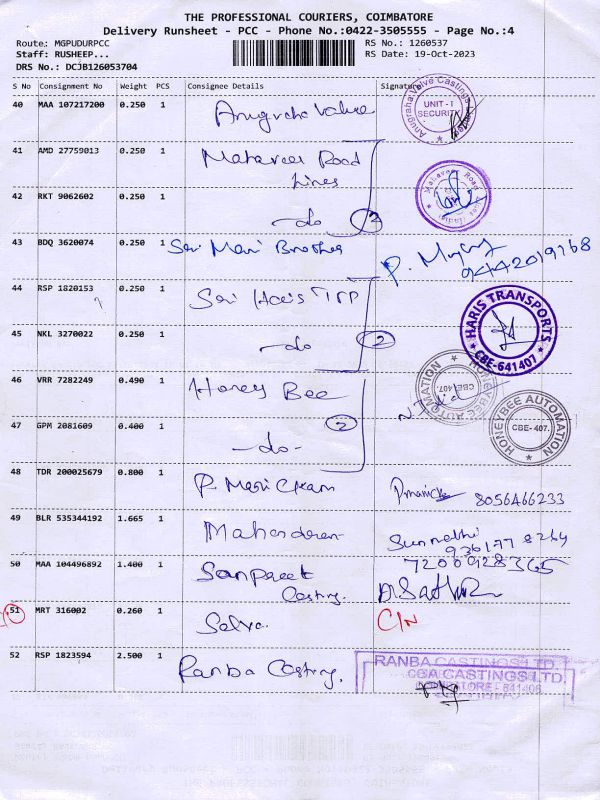 THE PROFESSIONAL COURIERS, COIMBATORE
Delivery Runsheet - PCC - Phone No.:0422-3505555 - Page No.:4
Route: MGPUDURPCC RS No.: 1260537
Staff: RUSHEEP... RS Date: 19-Oct-2023
DRS No.: DCJB126053704
S No Consignment No Weight PCS Consignee Details Signature
40 MAA 107217200 0.250 1 Anugraha Valve
Anugraha Valve Castings
UNIT - I
SECURITY
41 AMD 27759013 0.250 1 Mahaveer Road
Lines
42 RKT 9062602 0.250 1 -do- 2
43 BDQ 3620074 0.250 1 Sri Mari Brothers
9442019168
44 RSP 1820153 0.250 1 Sri Haris TPP
HARIS TRANSPORTS
CBE-641407
45 NKL 3270022 0.250 1 -do- 2
46 VRR 7282249 0.490 1 Honey Bee
HONEYBEE AUTOMATION
CBE-407.
47 GPM 2081609 0.400 1 -do- 2
HONEYBEE AUTOMATION
CBE-407.
48 TDR 200025679 0.800 1 P. Mani
8056466233
49 BLR 535344192 1.665 1 Mahendran
50 MAA 104496892 1.400 1 Sanpreet
7200928365
Casting.
51 MRT 316002 0.260 1 Selva. C/N
52 RSP 1823594 2.500 1 Ranba Casting.
RANBA CASTINGS LTD.
CBA CASTINGS LTD.
COIMBATORE - 641406